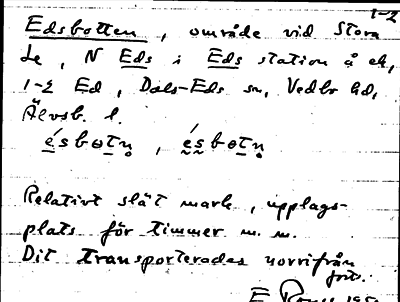 1-2
Edsbotten, område vid Stora
Le, N Eds i Eds station å ek,
1-2 Ed, Dals-Eds sn, Vedbo hd,
Älvsb. l.
Relativt slät mark, upplags-
plats för timmer m. m.
Dit transporterades norrifrån